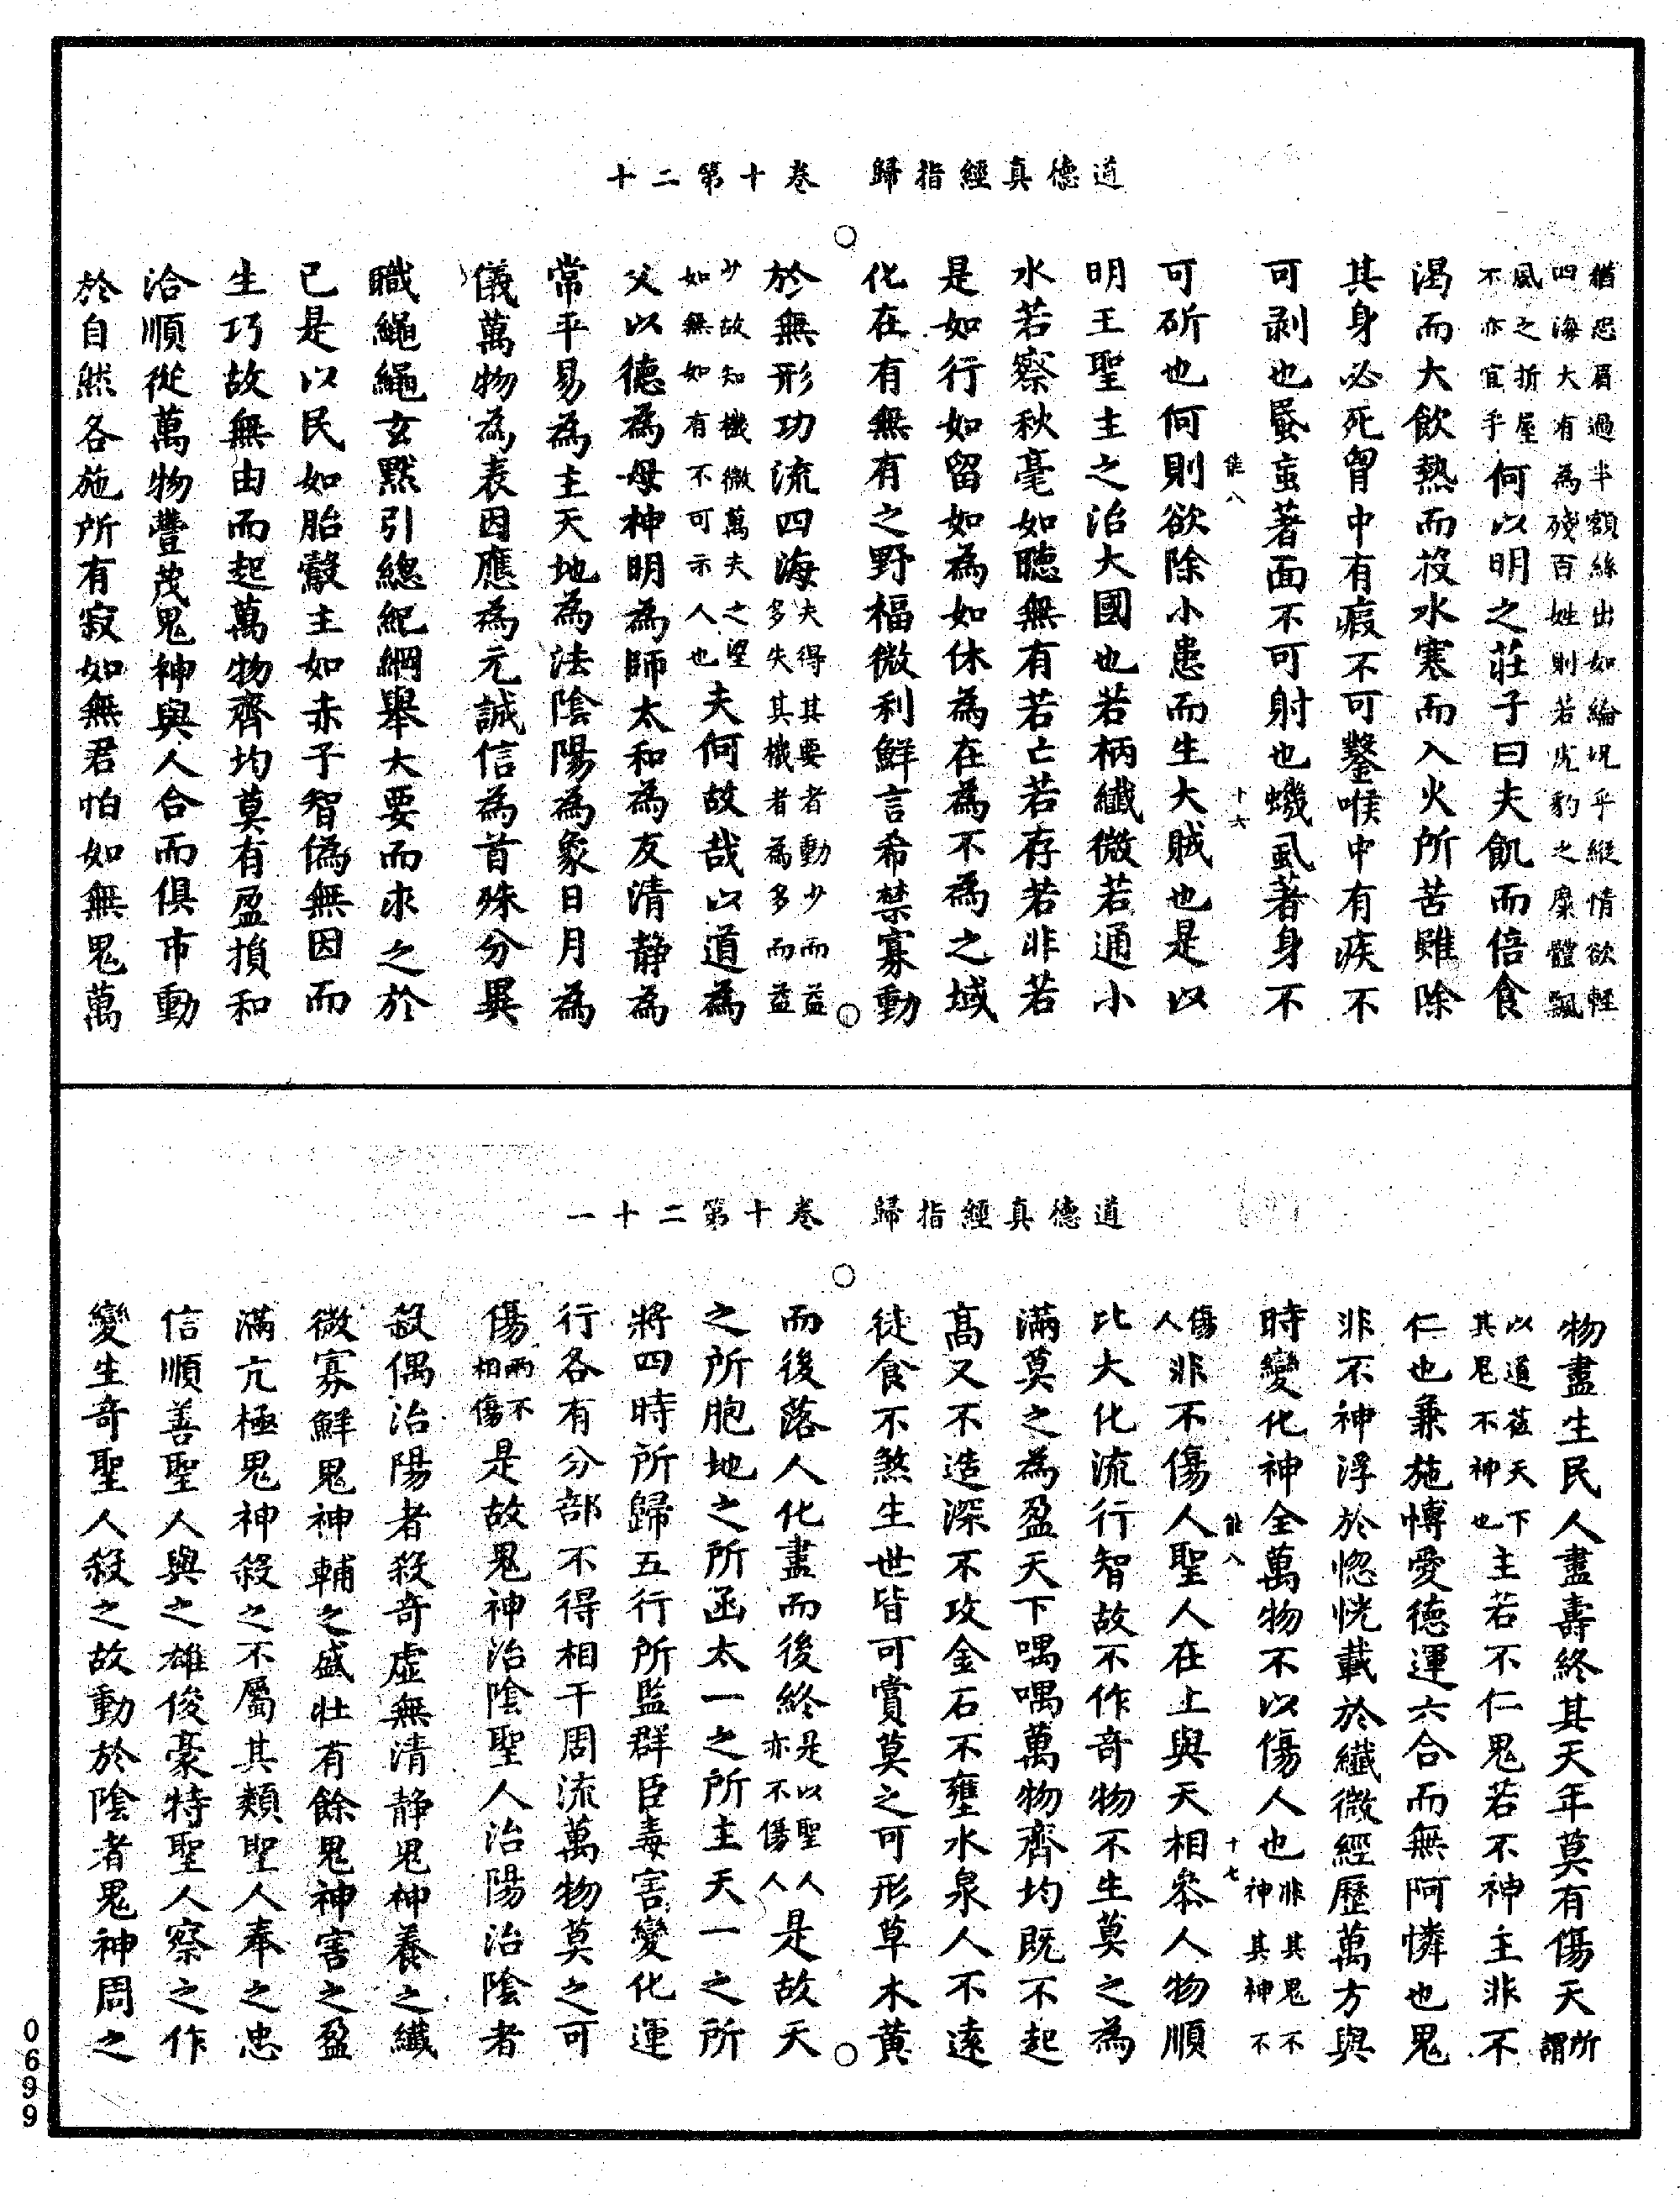 道德真經指歸　卷十第二十
猶忍眉過半額絲出如綸况乎縱情欲輕
四海大有為殘百姓則若虎豹之麋體飄
風之折屋
不亦宜乎何以明之莊子曰夫飢而倍食
渴而大飲熱而投水寒而入火所苦雖除
其身必死胷中有瘕不可鑿喉中有疾不
可剥也蚤䖟著面不可射也蟣虱著身不
能八　十六
可斫也何則欲除小患而生大賊也是以
明王聖主之治大國也若柄纖微若通小
水若察秋毫如聽無有若亡若存若非若
是如行如留如為如休為在為不為之域
化在有無有之野福微利鮮言希禁寡動
於無形功流四海夫得其要者動少而益
多失其機者為多而益
少故知機微萬夫之望
如無如有不可示人也夫何故哉以道為
父以德為母神明為師太和為友清静為
常平易為主天地為法陰陽為象日月為
儀萬物為表因應為元誠信為首殊分異
職繩繩玄默引總紀綱舉大要而求之於
已是以民如胎鷇主如赤子智偽無因而
生巧故無由而起萬物齊均莫有盈損和
洽順從萬物豐茂鬼神與人合而俱市動
於自然各施所有寂如無君怕如無鬼萬
道德真經指歸　卷十第二十一
物盡生民人盡壽終其天年莫有傷夭所謂
以道莅天下
其鬼不神也主若不仁鬼若不神主非不
仁也兼施愽愛德運六合而無阿憐也鬼
非不神浮於惚恍載於纖微經歷萬方與
時變化神全萬物不以傷人也非其鬼不
神其神不
能八　十七
傷
人非不傷人聖人在上與天相叅人物順
比大化流行智故不作奇物不生莫之為
滿莫之為盈天下喁喁萬物齊均既不起
髙又不造深不攻金石不壅水泉人不遠
徒食不煞生世皆可賞莫之可形草木黄
而後落人化盡而後終是以聖人
亦不傷人是故天
之所胞地之所函太一之所主天一之所
將四時所歸五行所監群臣毒害變化運
行各有分部不得相干周流萬物莫之可
傷兩不
相傷是故鬼神治陰聖人治陽治陰者
殺偶治陽者殺奇虚無清静鬼神養之纖
微寡鮮鬼神輔之盛壯有餘鬼神害之盈
滿亢極鬼神殺之不屬其類聖人奉之忠
信順善聖人與之雄俊豪特聖人察之作
變生奇聖人殺之故動於陰者鬼神周之
0699